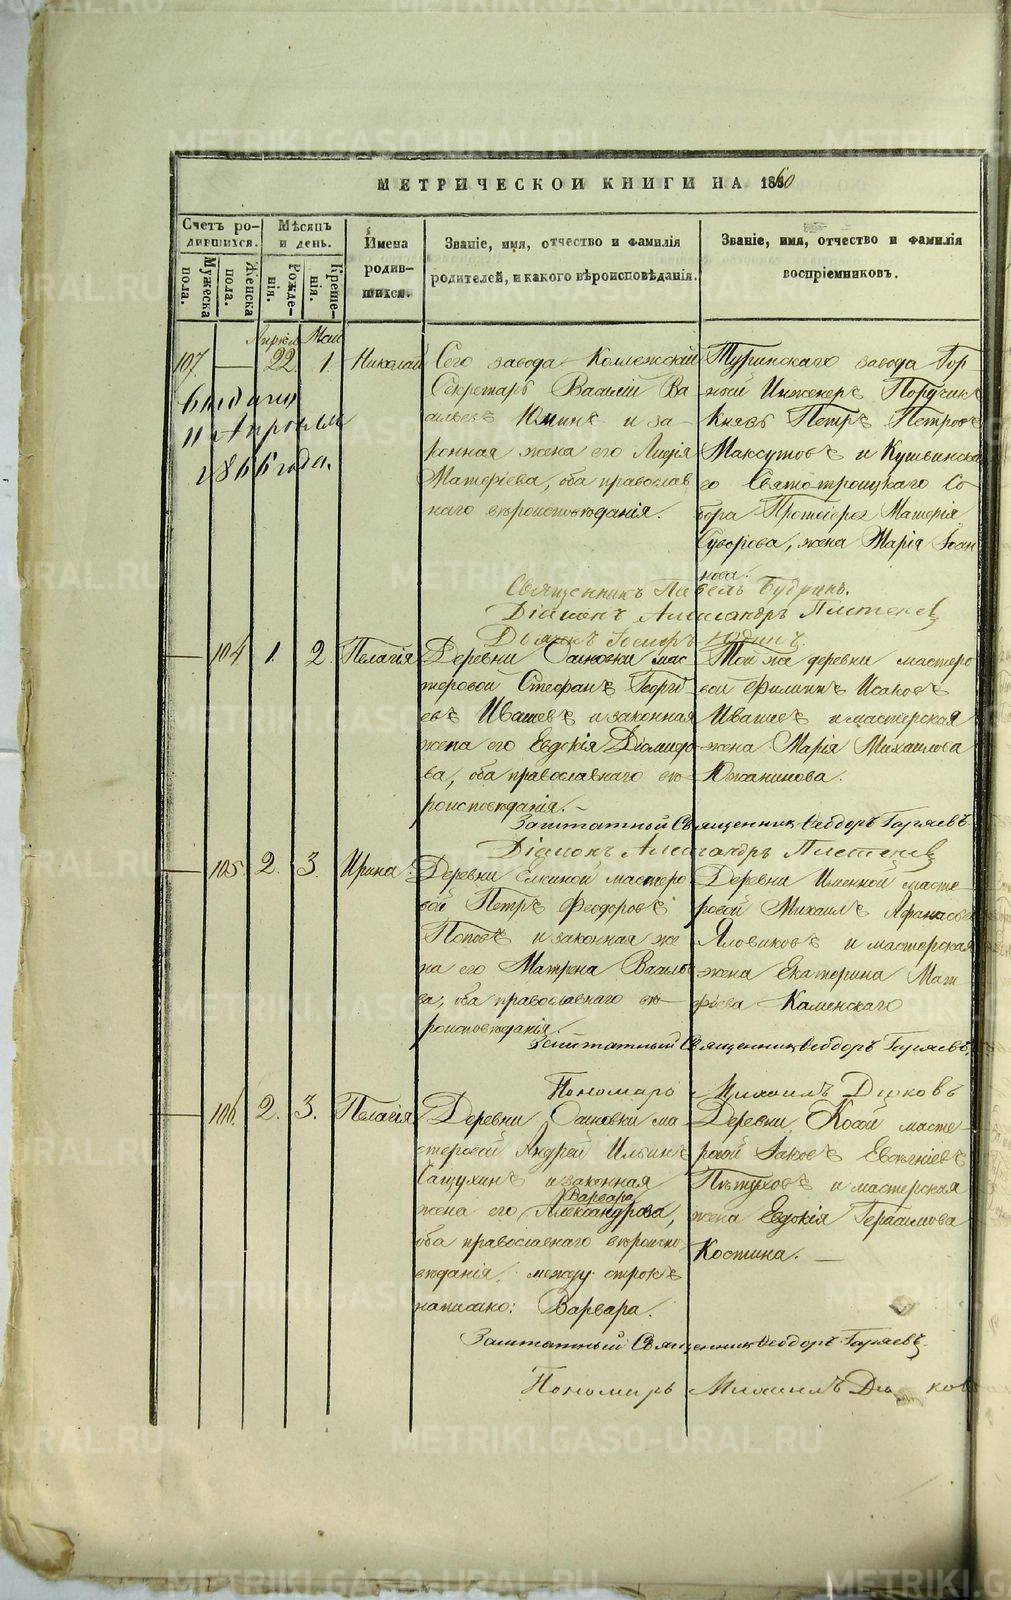 МЕТРИЧЕСКОЙ КНИГИ НА 1860
Счетъ ро-
дившихся.
Мѣсяцъ
и день.
Имена
родив-
шихся.
Званіе, имя, отчество и фамилія
родителей, и какого вѣроисповѣданія.
Званіе, имя, отчество и фамилія
воспріемниковъ.
Мужеска
пола.
Женска
пола.
Рожде-
нія.
Креще-
нія.
Апрѣл Май
107 22 1. Николай
Выдано
11 Апрѣля
1866 года.
Сего завода Коллежскій
Секретарь Василій Ва
сильевъ Юминъ и за-
конная жена его Лидія
Матвѣева, оба православ
наго вѣроисповѣданія.
Туринскаго завода Гор
ной Инженеръ Поручикъ
Князь Петръ Петровъ
Максутовъ и Кушвинска
го Святотроицкаго Со
бора Протоіерея Матвѣя
Суворова, жена Марія Іоан
нова.
Священникъ Павелъ Будринъ.
Діаконъ Александръ Плетеневъ
104 1. 2. Пелагія
Деревни Осиновки мас
теровой Стефанъ Георгі
евъ Ивашевъ и законная
жена его Евдокія Діомидо
ва, оба православнаго вѣ
роисповѣданія. —
Той же деревни мастеро
вой Филиппъ Исаковъ
Ивашевъ и мастерская
жена Марія Михаилова
Южанинова.
Заштатный Священникъ Ѳеодоръ Гаряевъ
Діаконъ Александръ Плетеневъ
105. 2. 3. Ирина
Деревни Елкиной мастеро
вой Петръ Феодоровъ
Поповъ и законная же
на его Матрена Василье
ва, оба православнаго вѣ-
роисповѣданія.
Деревни Именной масте-
ровой Михаилъ Афанасьев
Яловиковъ и мастерская
жена Екатерина Мат-
фѣева Каменскаго
Заштатный Священникъ Ѳеодоръ Гаряевъ,
Пономарь Михаилъ Дюковъ
106. 2. 3. Пелагія
Деревни Осиновки ма
стеровой Андрей Ильинъ
Сащухинъ и законная
Варвара
жена его Александрова,
оба православнаго вѣроиспо
вѣданія. между строкъ
написано: Варвара.
Деревни Косой масте-
ровой Іаковъ Евгеніевъ
Пѣтуховъ и мастерская
жена Евдокія Герасимова
Костина. —
Заштатный Священникъ Ѳеодоръ Гаряевъ
Пономарь Михаилъ Дюковъ
METRIKI.GASO-URAL.RU